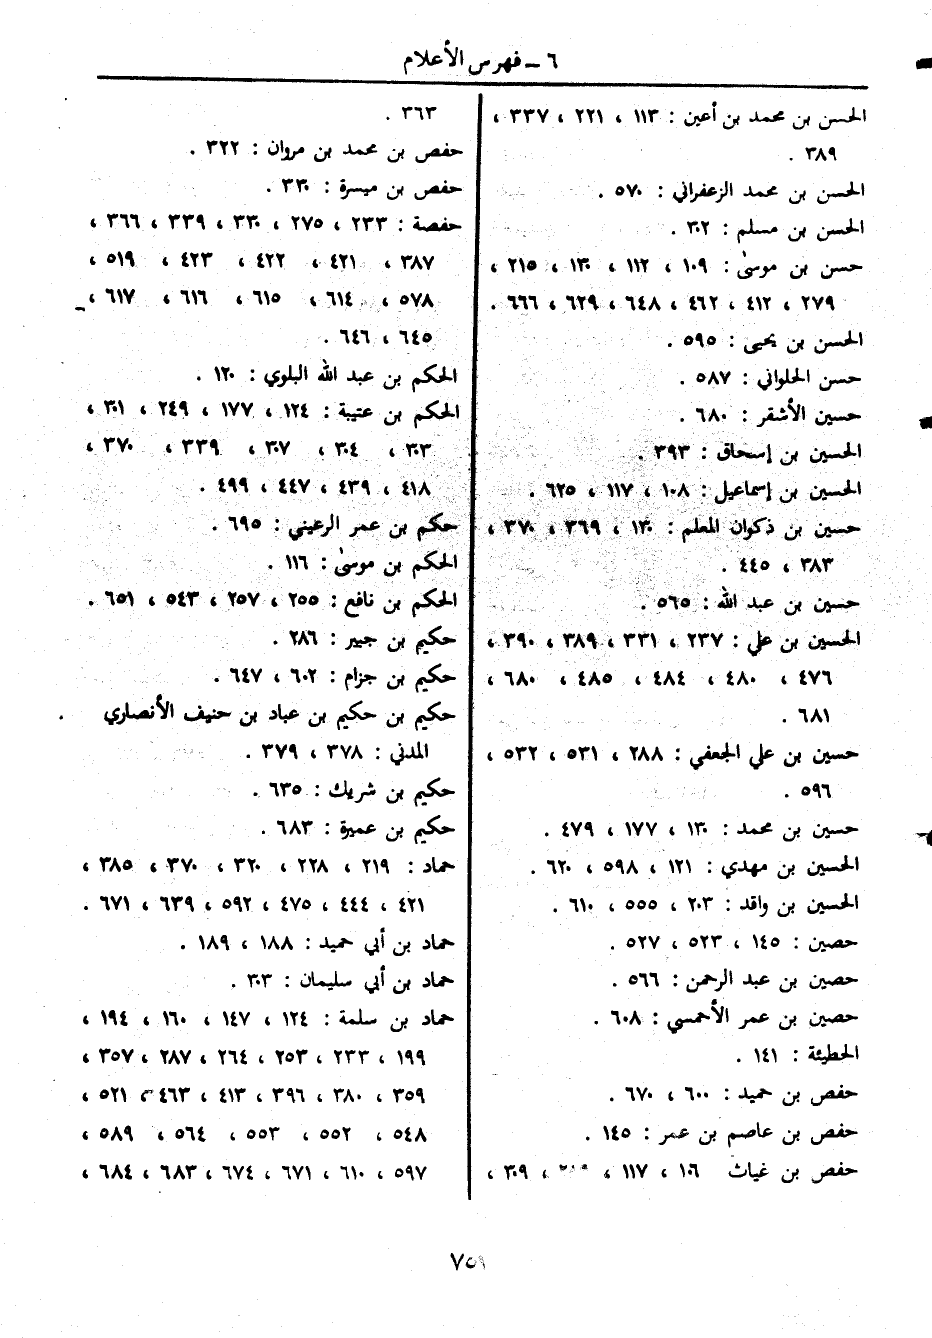 ٦ ـ فهرس الأعلام
الحسن بن محمد بن أعين : ١١٣ ، ٢٢١ ، ٣٣٧ ،
٣٨٩ .
الحسن بن محمد الزعفراني : ٥٧٠ .
الحسن بن مسلم : ٣٠٢ .
حسن بن موسىٰ : ١٠٩ ، ١١٢ ، ١٣٠ ، ٢١٥ ،
٢٧٩ ، ٤١٢ ، ٤٦٢ ، ٦٤٨ ، ٦٢٩ ، ٦٦٦ .
الحسن بن يحيى : ٥٩٥ .
حسن الحلواني : ٥٨٧ .
حسين الأشقر : ٦٨٠ .
الحسين بن إسحاق : ٣٩٣ .
الحسين بن إسماعيل : ١٠٨ ، ١١٧ ، ٦٢٥ .
حسين بن ذكوان المعلم : ١٣٠ ، ٣٦٩ ، ٣٧٠ ،
٣٨٣ ، ٤٤٥ .
حسين بن عبد الله : ٥٦٥ .
الحسين بن علي : ٢٣٧ ، ٣٣١ ، ٣٨٩ ، ٣٩٠ ،
٤٧٦ ، ٤٨٠ ، ٤٨٤ ، ٤٨٥ ، ٦٨٠ ،
٦٨١ .
حسين بن علي الجعفي : ٢٨٨ ، ٥٣١ ، ٥٣٢ ،
٥٩٦ .
حسين بن محمد : ١٣٠ ، ١٧٧ ، ٤٧٩ .
الحسين بن مهدي : ١٢١ ، ٥٩٨ ، ٦٢٠ .
الحسين بن واقد : ٢٠٣ ، ٥٥٥ ، ٦١٠ .
حصين : ١٤٥ ، ٥٢٣ ، ٥٢٧ .
حصين بن عبد الرحمن : ٥٦٦ .
حصين بن عمر الأحمسي : ٦٠٨ .
الحطيئة : ١٤١ .
حفص بن حميد : ٦٠٠ ، ٦٧٠ .
حفص بن عاصم بن عمر : ١٤٥ .
حفص بن غياث ١٠٦ ، ١١٧ ، ، ٣٠٩ ،
٣٦٣ .
حفص بن محمد بن مروان : ٣٢٢ .
حفص بن ميسرة : ٣٣٠ .
حفصة : ٢٣٣ ، ٢٧٥ ، ٣٣٠ ، ٣٣٩ ، ٣٦٦ ،
٣٨٧ ، ٤٢١ ، ٤٢٢ ، ٤٢٣ ، ٥١٩ ،
٥٧٨ ، ٦١٤ ، ٦١٥ ، ٦١٦ ، ٦١٧ ،
٦٤٥ ، ٦٤٦ .
الحكم بن عبد الله البلوي : ١٢٠ .
الحكم بن عتيبة : ١٢٤ ، ١٧٧ ، ٢٤٩ ، ٣٠١ ،
٣٠٣ ، ٣٠٤ ، ٣٠٧ ، ٣٣٩ ، ٣٧٠ ،
٤١٨ ، ٤٣٩ ، ٤٤٧ ، ٤٩٩ .
حكم بن عمر الرعيني : ٦٩٥ .
الحكم بن موسىٰ : ١١٦ .
الحكم بن نافع : ٢٥٥ ، ٢٥٧ ، ٥٤٣ ، ٦٥١ .
حكيم بن جبير : ٢٨٦ .
حكيم بن جزام : ٦٠٢ ، ٦٤٧ .
حكيم بن حكيم بن عباد بن حنيف الأنصاري
المدني : ٣٧٨ ، ٣٧٩ .
حكيم بن شريك : ٦٣٥ .
حكيم بن عميرة : ٦٨٣ .
حماد : ٢١٩ ، ٢٢٨ ، ٣٢٠ ، ٣٧٠ ، ٣٨٥ ،
٤٢١ ، ٤٤٤ ، ٤٧٥ ، ٥٩٢ ، ٦٣٩ ، ٦٧١ .
حماد بن أبي حميد : ١٨٨ ، ١٨٩ .
حماد بن أبي سليمان : ٣٠٣ .
حماد بن سلمة : ١٢٤ ، ١٤٧ ، ١٦٠ ، ١٩٤ ،
١٩٩ ، ٢٣٣ ، ٢٥٣ ، ٢٦٤ ، ٢٨٧ ، ٣٥٧ ،
٣٥٩ ، ٣٨٠ ، ٣٩٦ ، ٤١٣ ، ٤٦٣ ، ٥٢١ ،
٥٤٨ ، ٥٥٢ ، ٥٥٣ ، ٥٦٤ ، ٥٨٩ ،
٥٩٧ ، ٦١٠ ، ٦٧١ ، ٦٧٤ ، ٦٨٣ ، ٦٨٤ ،
٧٥٩